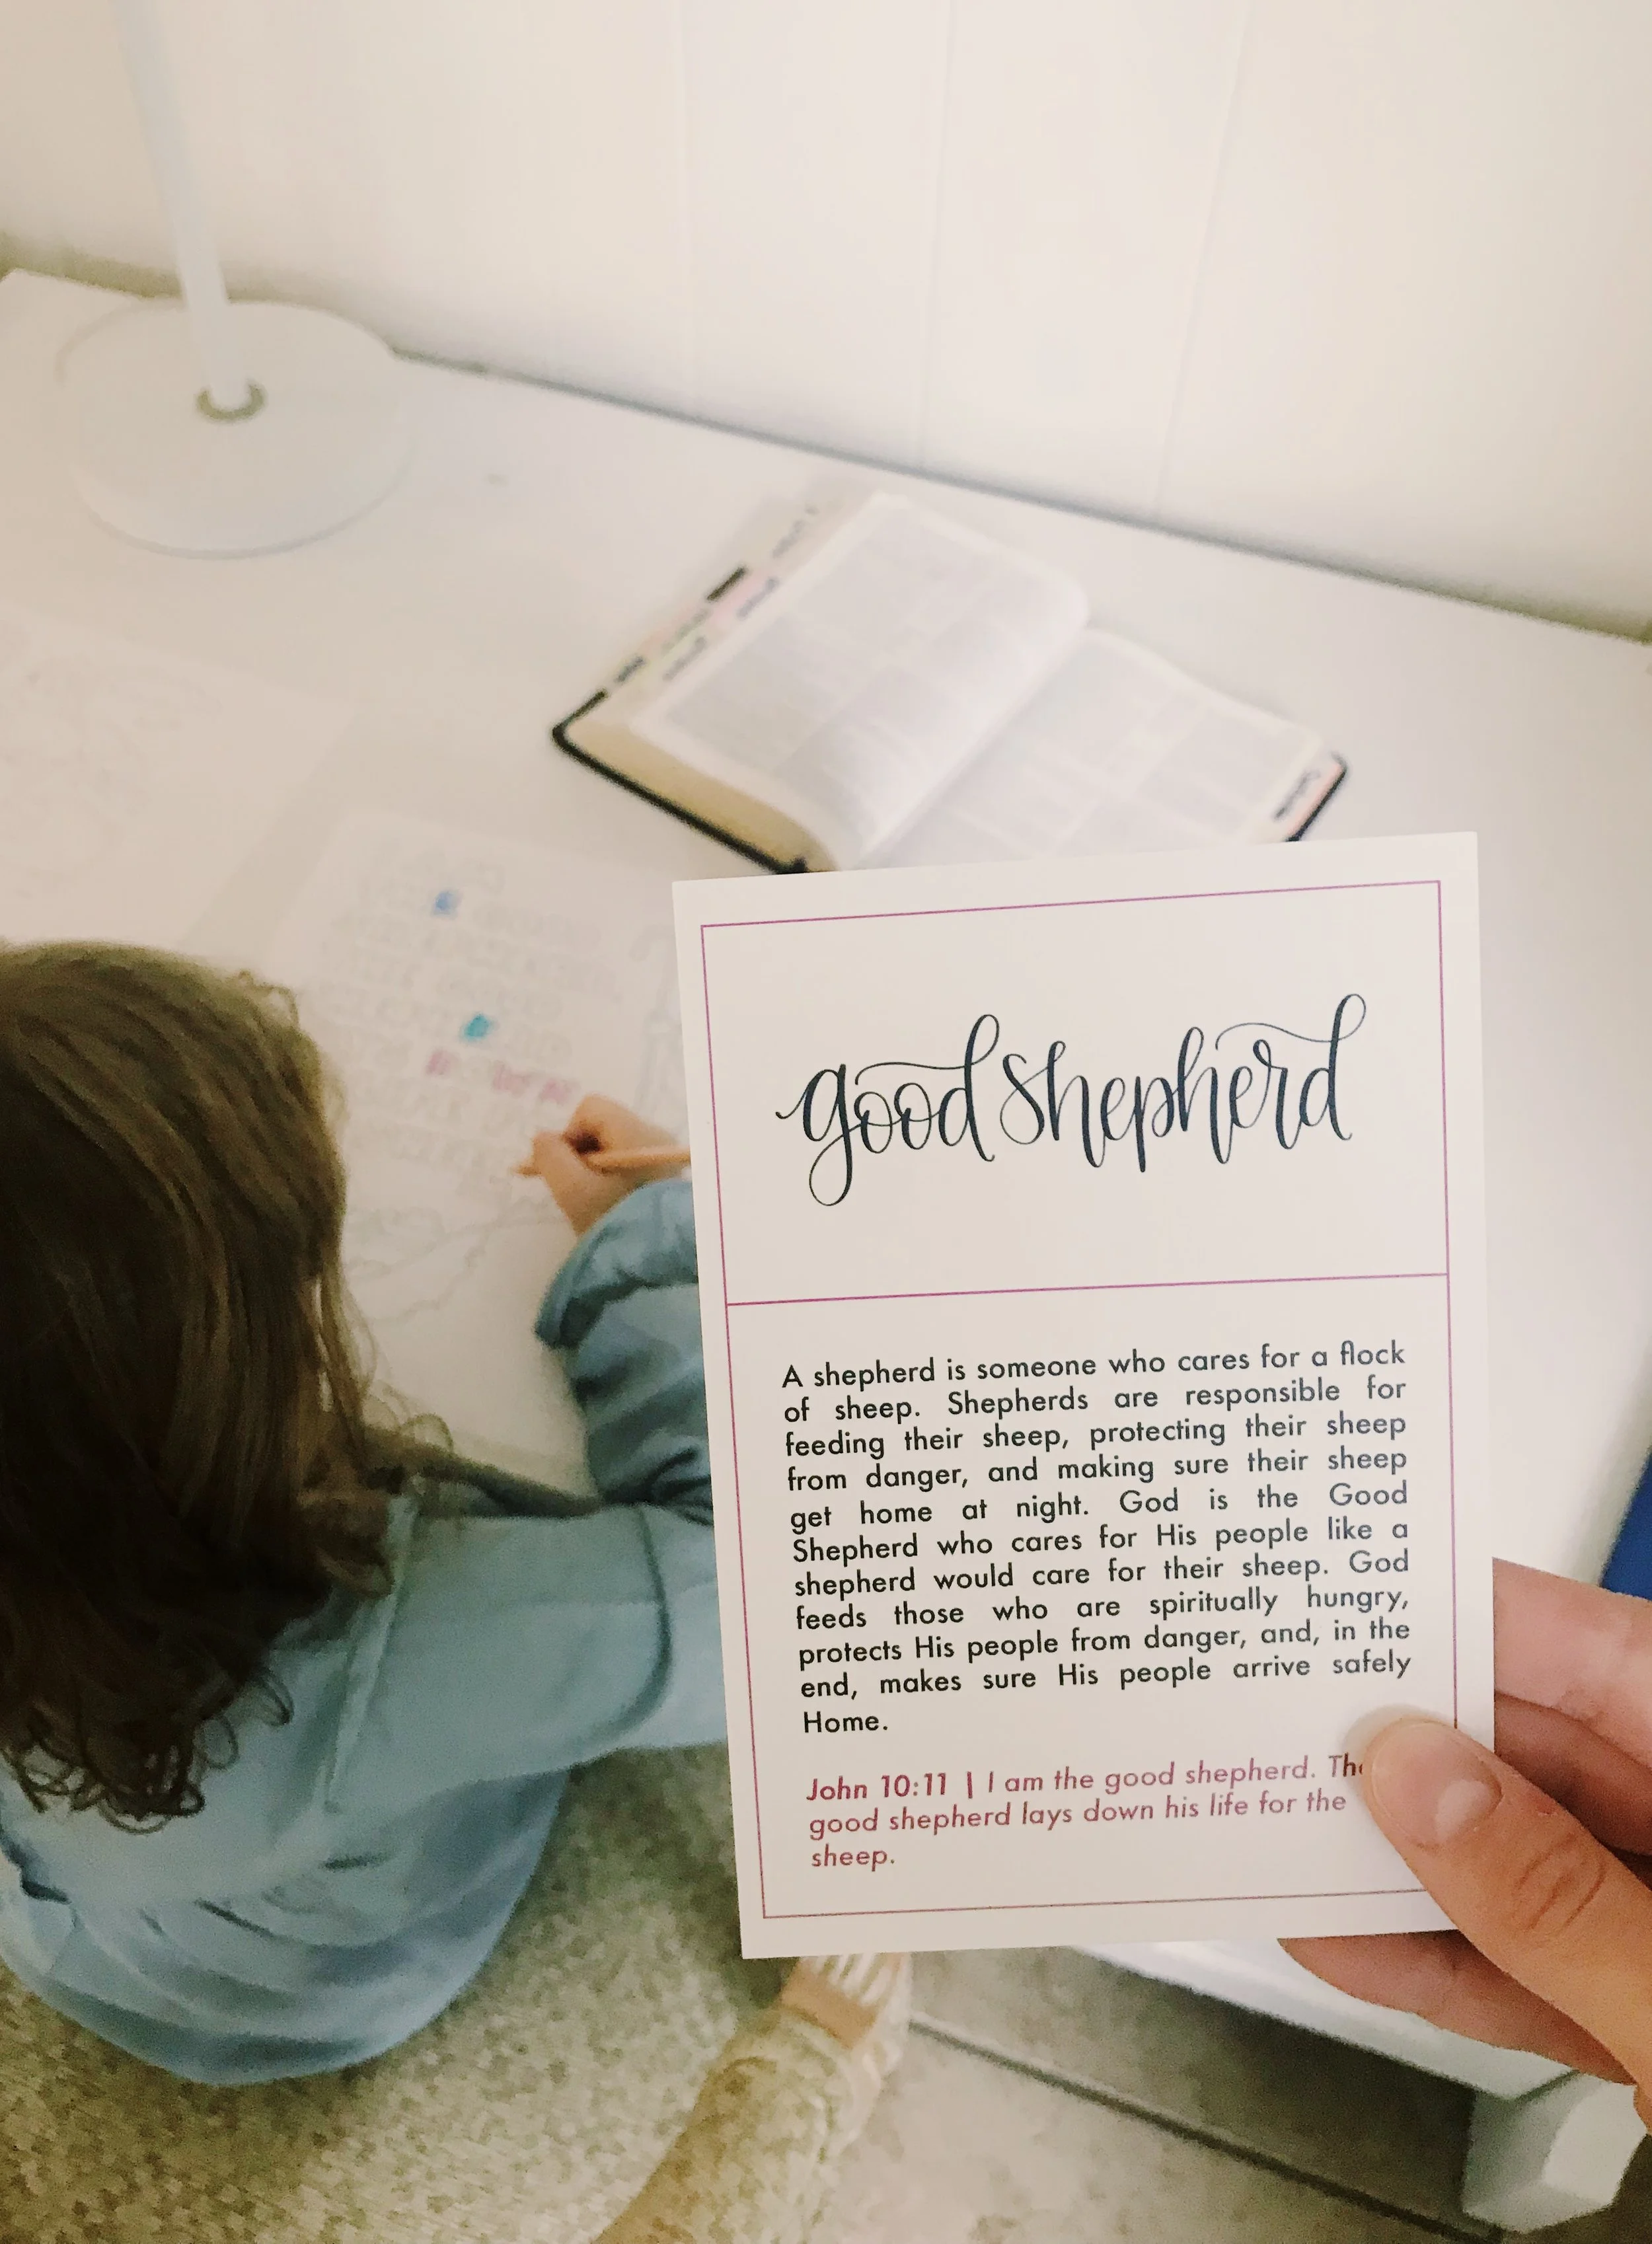 good shepherd
A shepherd is someone who cares for a flock
of sheep. Shepherds are responsible for
feeding their sheep, protecting their sheep
from danger, and making sure their sheep
get home at night. God is the Good
Shepherd who cares for His people like a
shepherd would care for their sheep. God
feeds those who are spiritually hungry,
protects His people from danger, and, in the
end, makes sure His people arrive safely
Home.
John 10:11 | I am the good shepherd. The
good shepherd lays down his life for the
sheep.